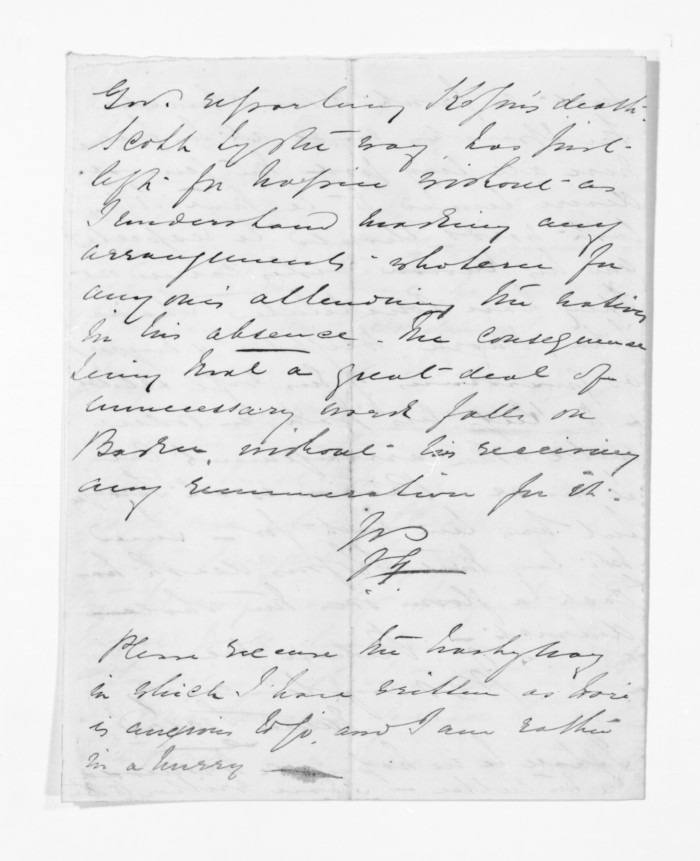 Gov. reporting Kopu's death.
Scott by the way has just
left for Napier without as
I understand making any
arrangements whatever for
any one's attending the natives
in his absence. The consequence
being that a great deal of
unnecessary work falls on
Baker, without his receiving
any remuneration for it.
Please excuse the hasty way
in which I have written as
is anxious to go, and I am rather
in a hurry